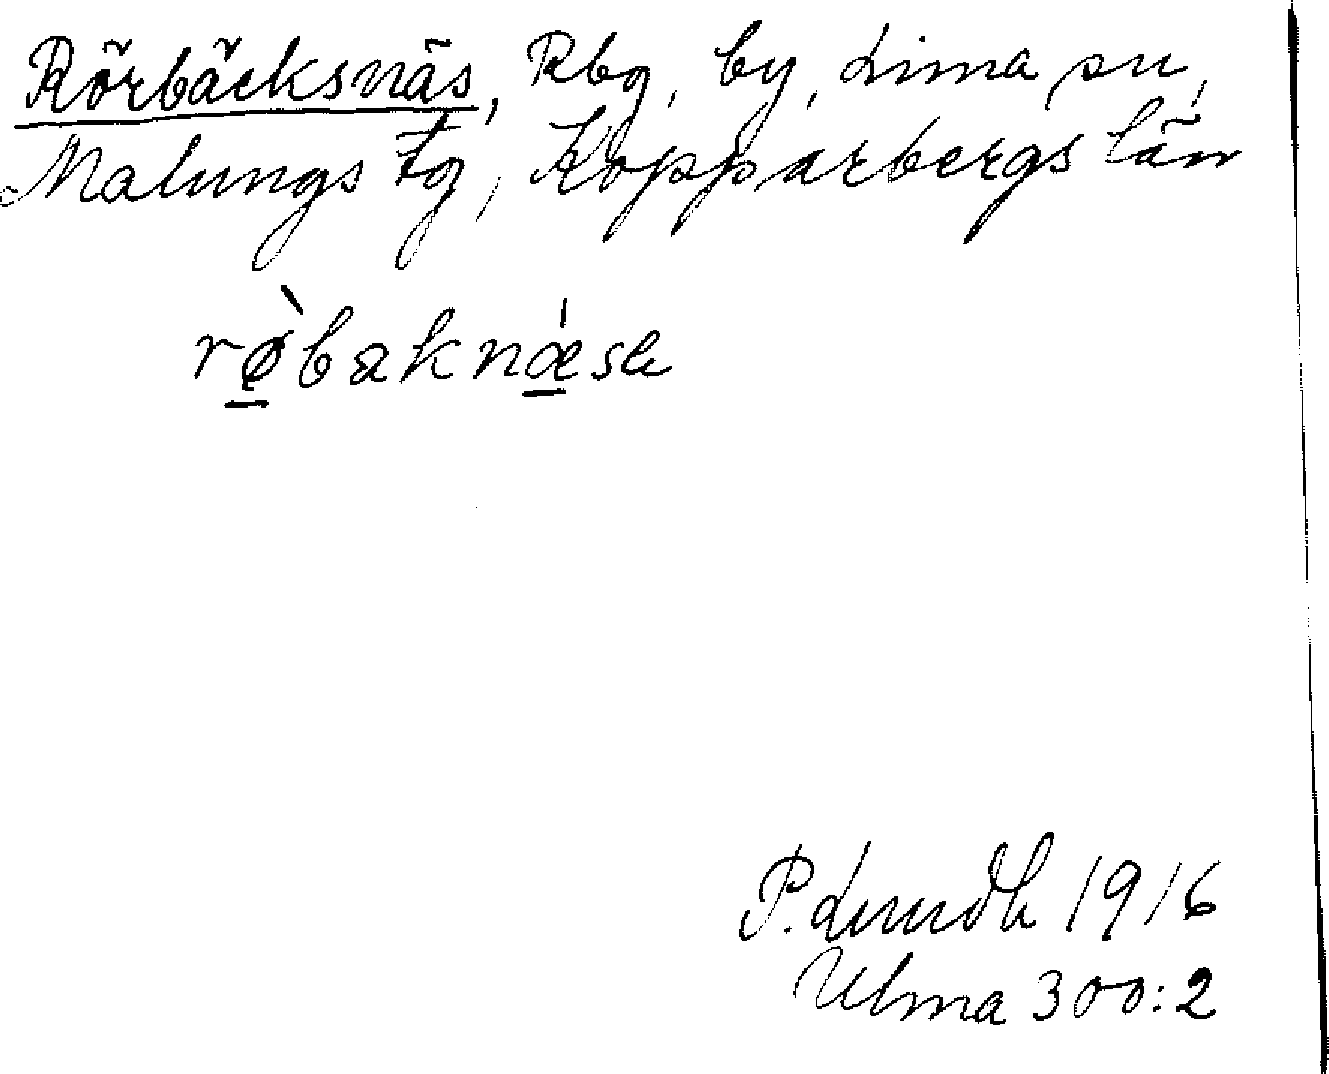 Rörbäcksnäs, Rbg, by, Lima sn,
Malungs tg, Kopparbergs län
rø̠̀bakná̠̠̠̠̠̠̠̠æse
P. Lundh 1916
Ulma 300:2